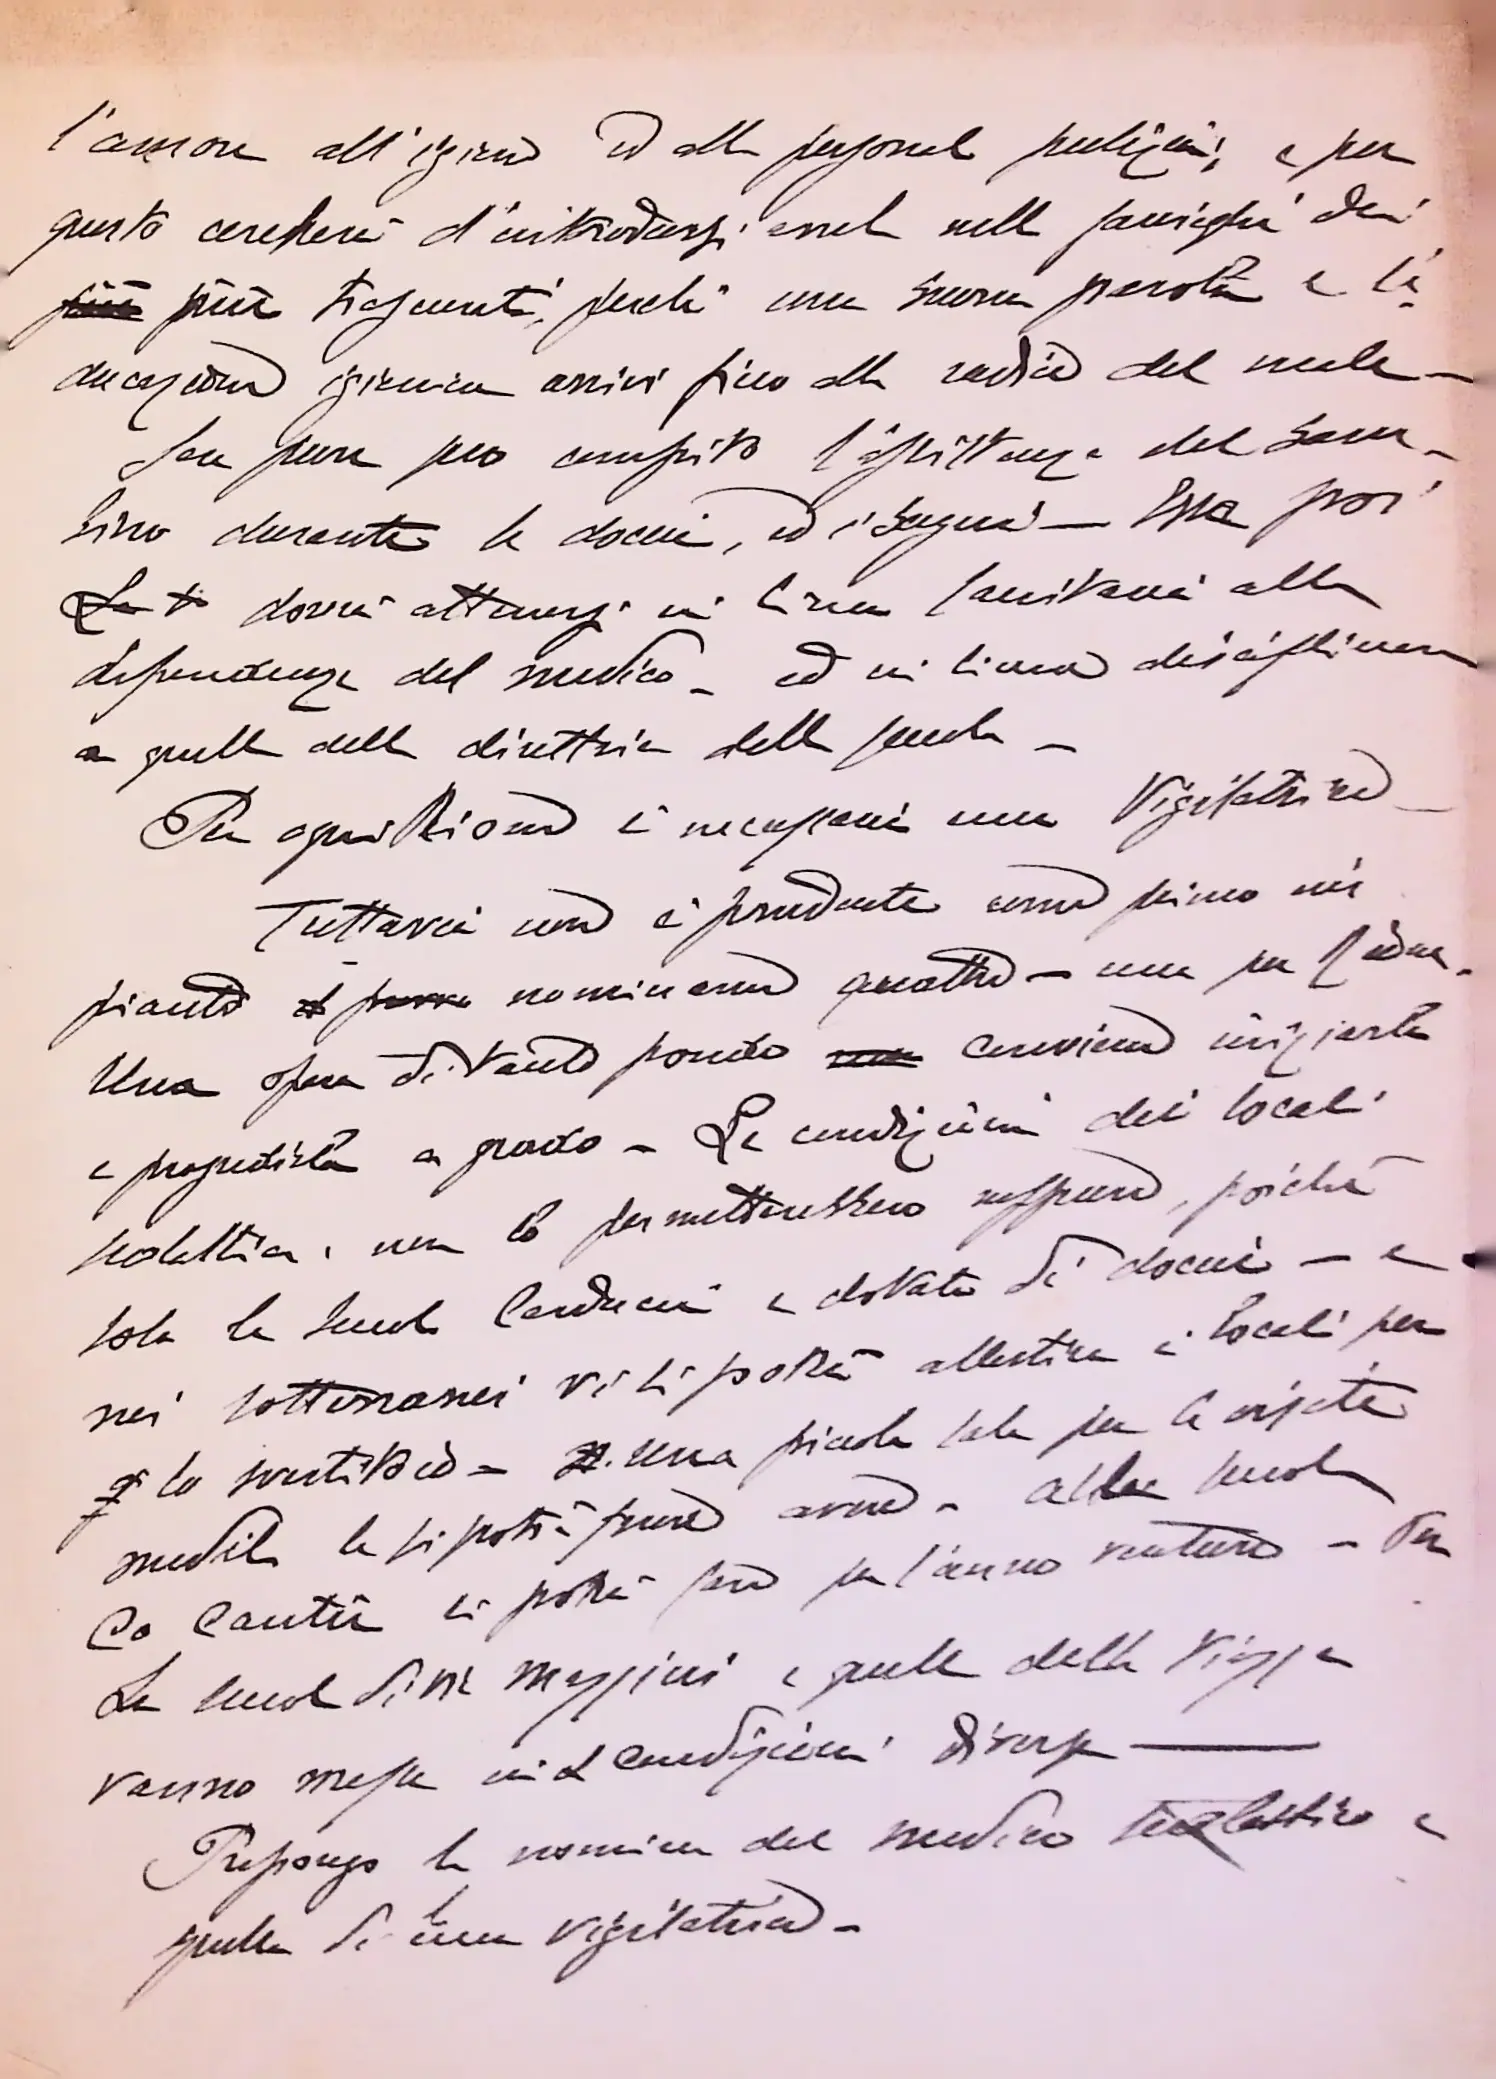 l'amore all'igiene ed alla personale pulizia, e per
questo cercherà d'introdursi anche nelle famiglie dei
più trascurati, perchè una buona parola e l'e-
ducazione igienica arrivi fino alla radice del male –
Sarà pure suo compito l'assistenza del bam-
bino durante le doccie, ed i bagni – Essa poi
dovrà attenersi in linea sanitaria alla
dipendenza del medico – ed in linea disciplinare
a quella della direttrice della scuola –
Per ogni Rione è necessaria una Vigilatrice –
Tuttavia non è prudente come primo im
pianto nominarne quattro – una per Rione.
Una opera di tanto pondo conviene iniziarla
e progredirla a grado – Le condizioni dei locali
scolastici, non lo permetterebbero neppure, poichè
sola la scuola Carducci è dotata di doccie – e
nei sotterranei vi si potrà allestire i locali per
lo spogliatoio – Una piccola sala per le visite
mediche la si potrà pure avere – Alla scuola
C. Cantù si potrà fare per l'anno venturo – Per
La scuola di via Mazzini e quella della Piazza
vanno messe in condizioni diverse ——
Propongo la nomina del medico scolastico e
quella di una vigilatrice –